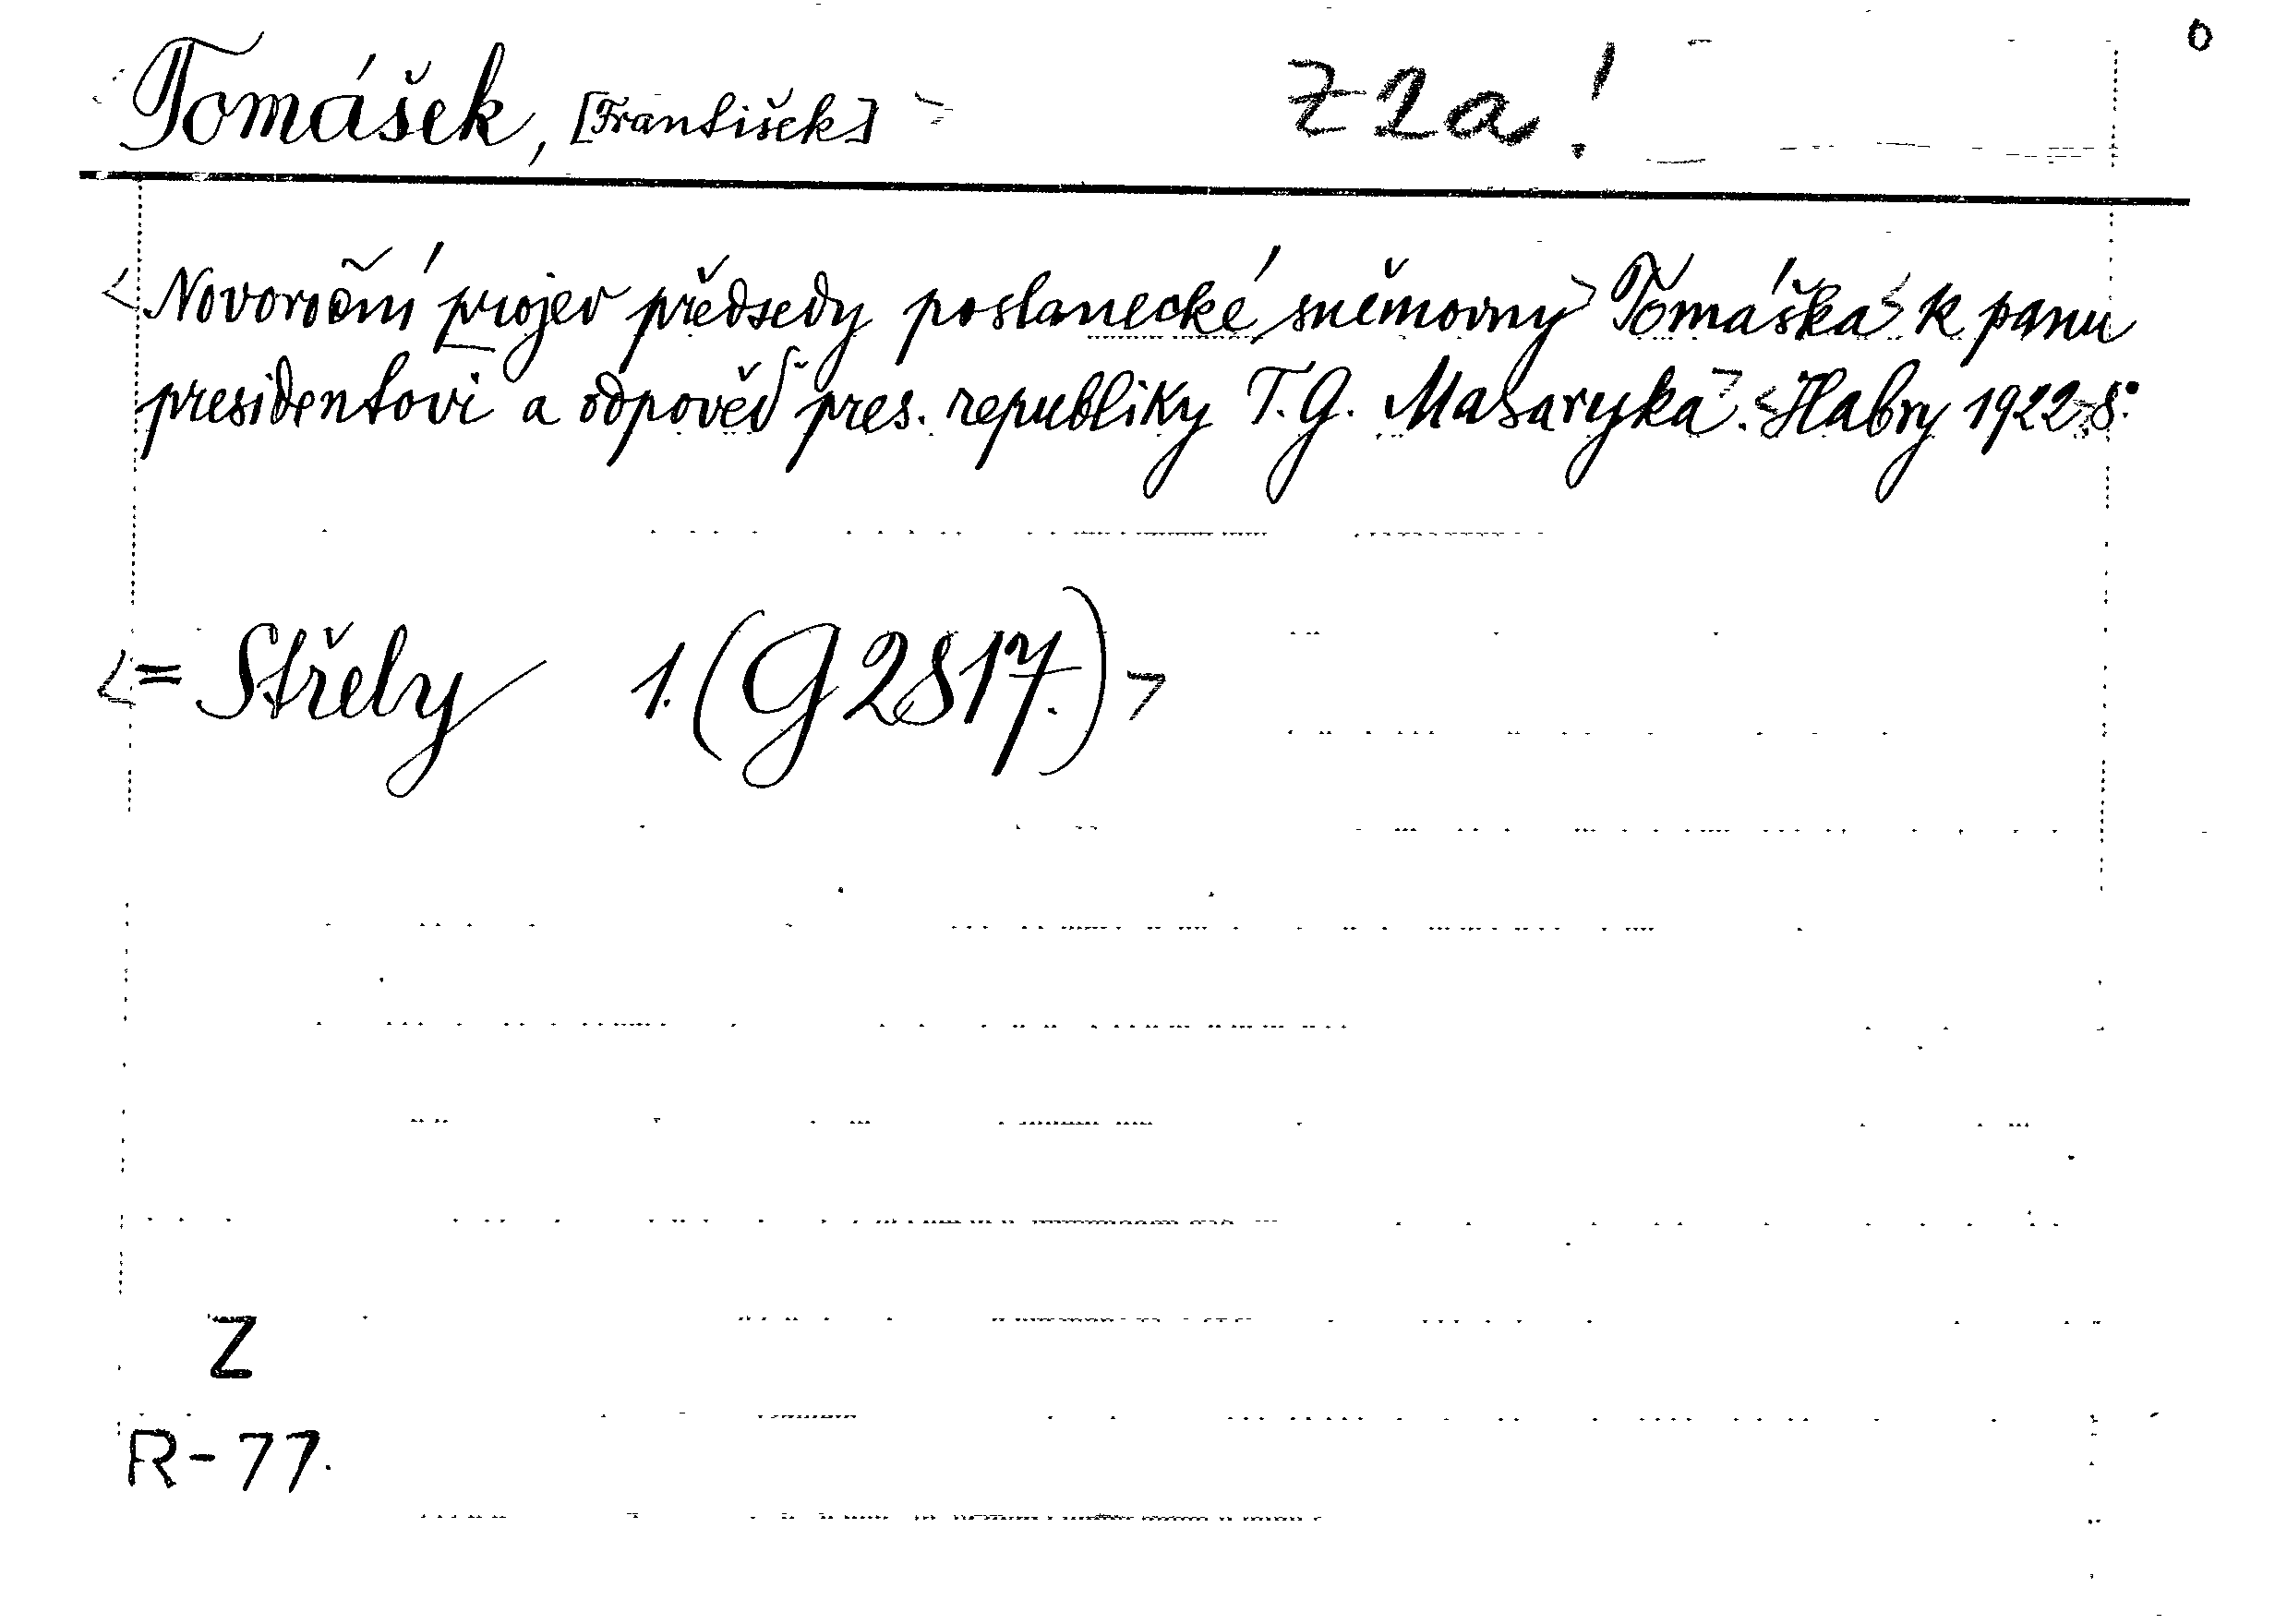 Tomášek, [František] Z 2a!
0
<Novoroční projev předsedy poslanecké sněmovny> Tomáška< k panu
presidentovi a odpověď pres. republiky T. G. Masaryka>. <Habry 1922> 8°.
<= Střely 1. (G 2817.)>
Z
R-77.